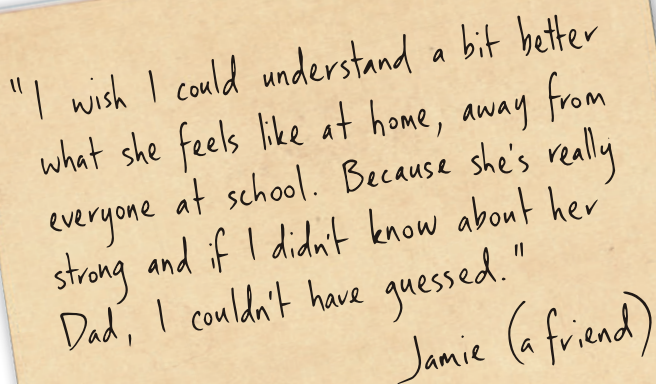 "I wish I could understand a bit better
what she feels like at home, away from
everyone at school. Because she's really
strong and if I didn't know about her
Dad, I couldn't have guessed."
Jamie (a friend)